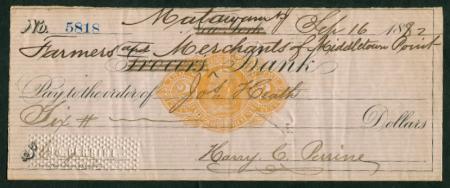 No. 5818 Matawan NJ Sep 16 1882
Farmers and Merchants of Middletown Point
Bank
Pay to the order of Jos Heath
Six # Dollars
Harry C. Perrine